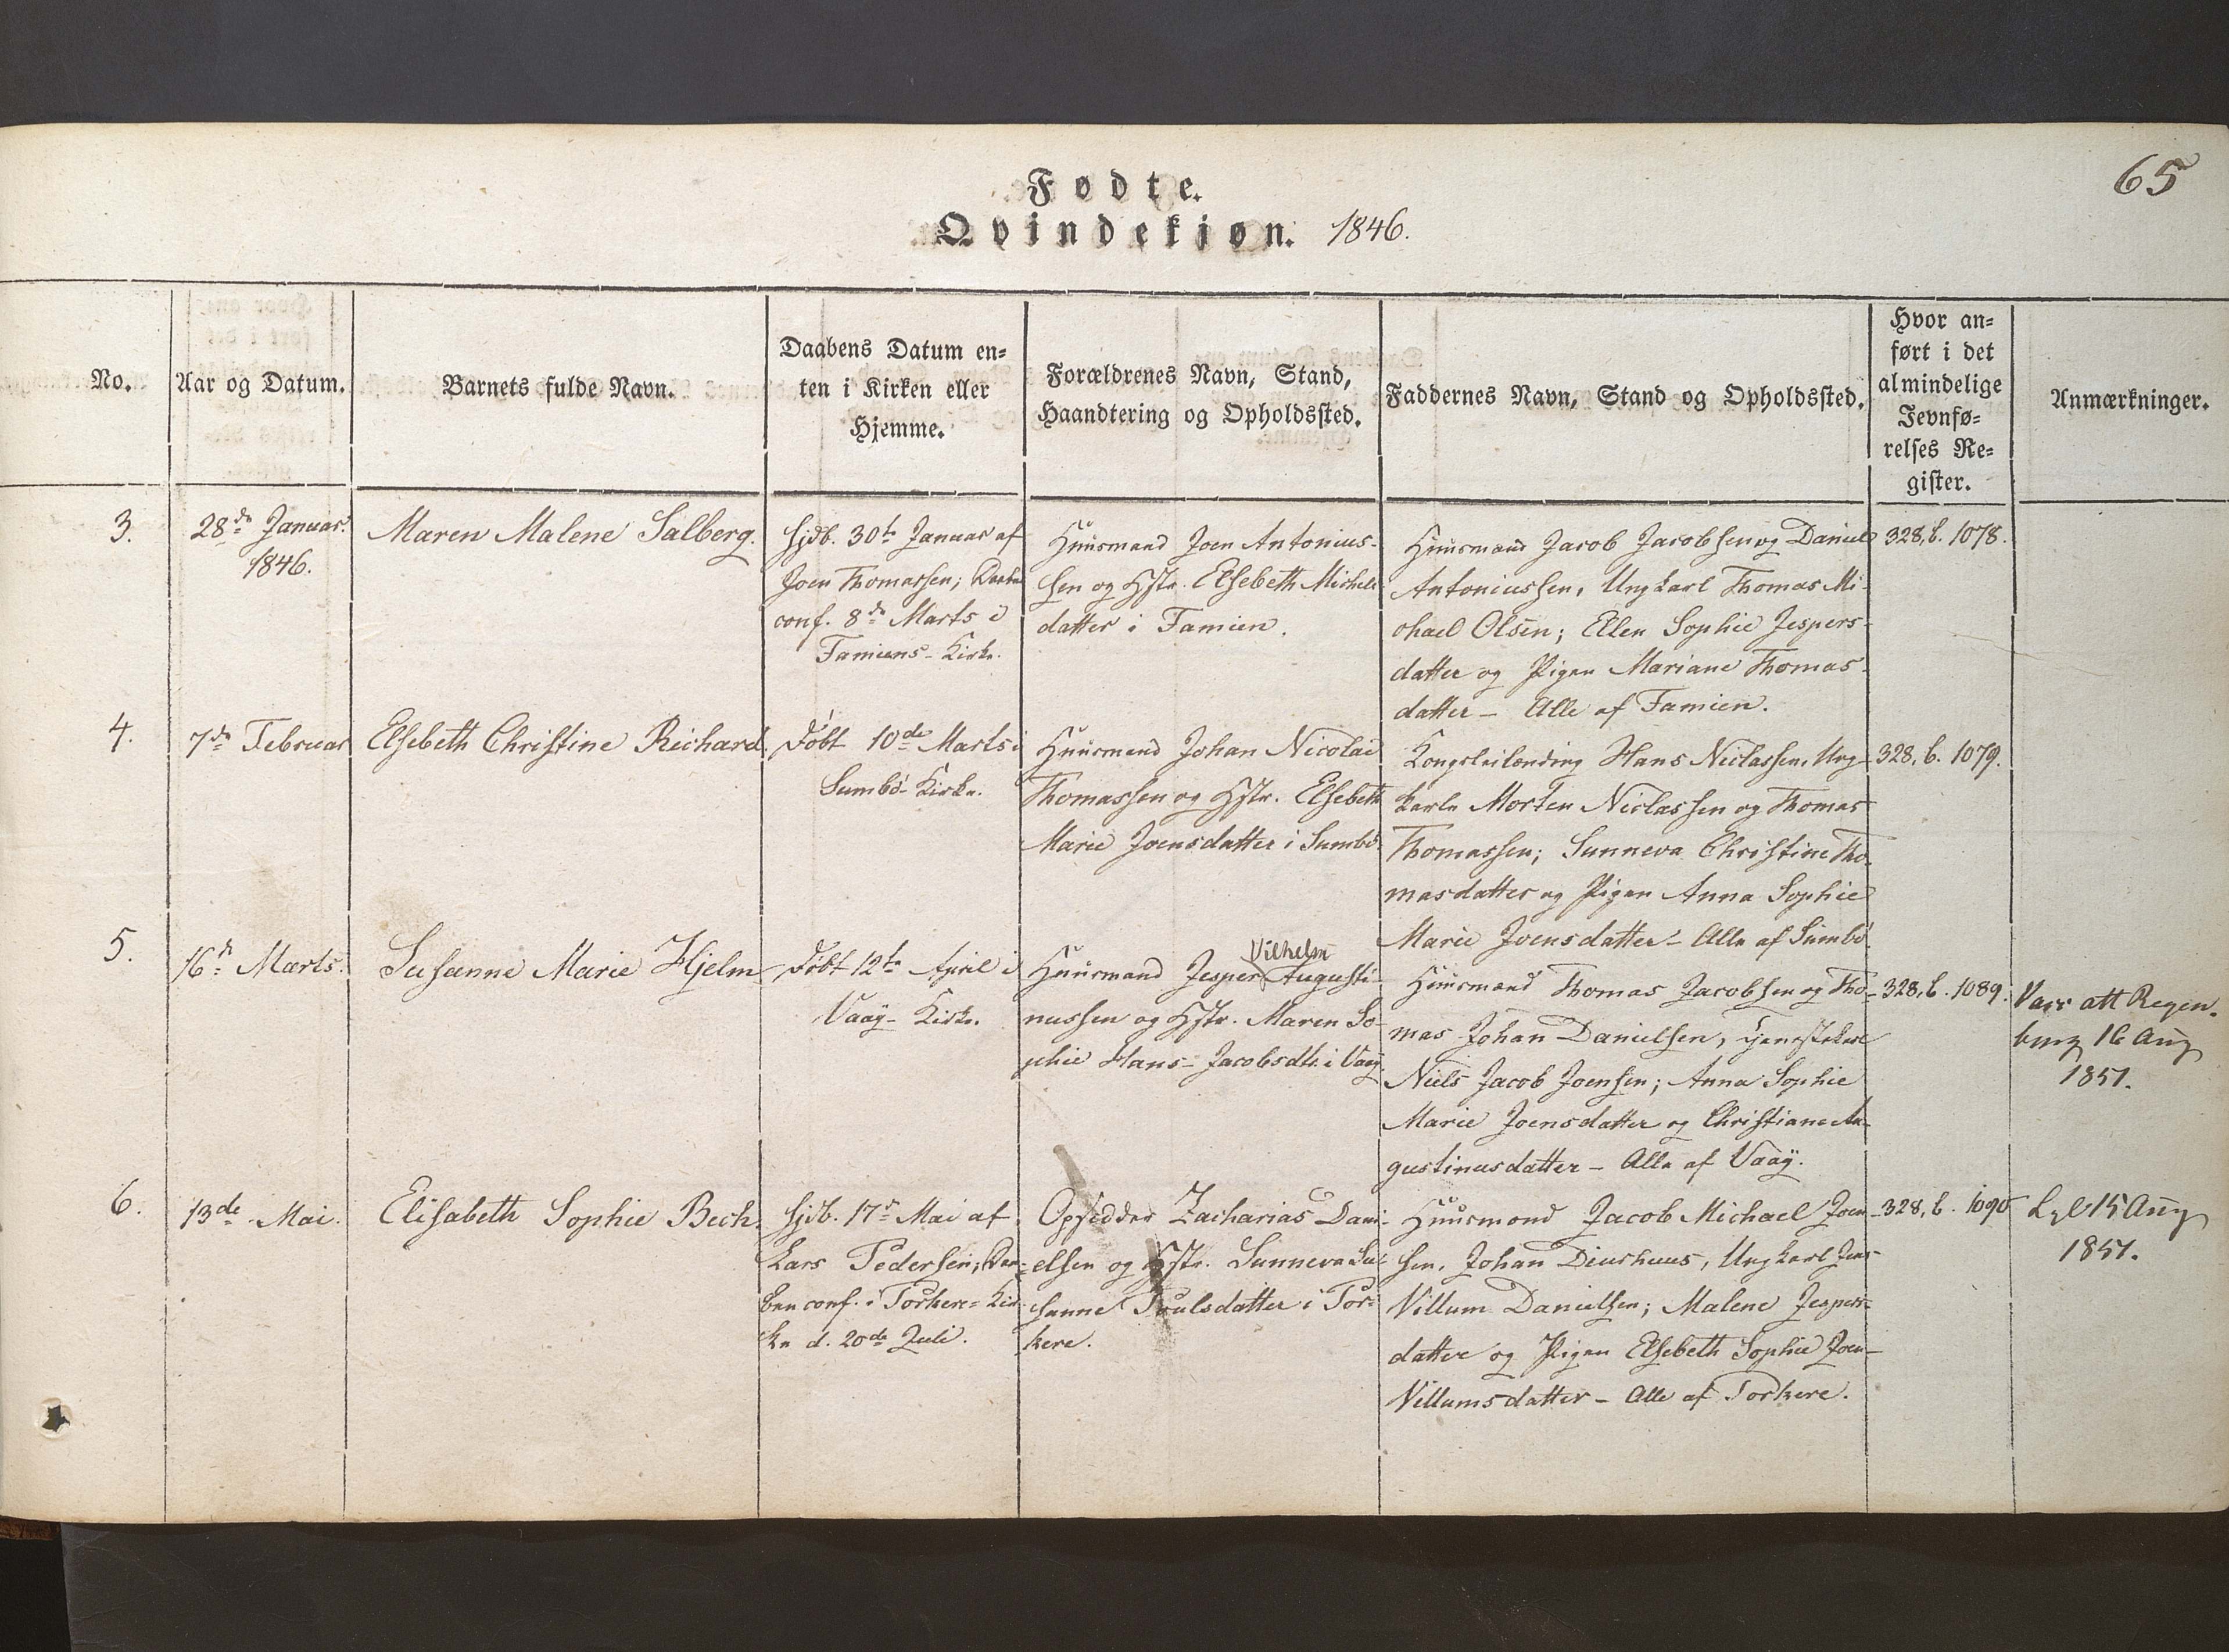 65
Fødte.
Qvindekjøn. 1846.
No.
Aar og Datum.
Barnets fulde Navn.
Daabens Datum en=
ten i Kirken eller
Hjemme.
Forældrenes Navn, Stand,
Haandtering og Opholdssted.
Faddernes Navn, Stand og Opholdssted.
Hvor an=
ført i det
almindelige
Jevnfø=
relses Re=
gister.
Anmærkninger.
3.
28de Januar.
1846.
Maren Malene Salberg.
Hjdb. 30te Januar af
Joen Thomassen; Daaben
conf. 8de Marts i
Famiens-Kirke.
Huusmand Joen Antonius-
sen og Hstr. Elsebeth Michels
datter i Famien.
Huusmænd Jacob Jacobsen og Daniel
Antoniussen, Ungkarl Thomas Mi-
chael Olsen; Ellen Sophie Jespers-
datter og Pigen Mariane Thomas-
datter - Alle af Famien.
328, b. 1078.
4.
7de Februar
Elsebeth Christine Richard.
Døbt 10de Marts i
Sumbø-Kirke.
Huusmand Johan Nicolai
Thomassen og Hstr. Elsebeth
Marie Joensdatter i Sumbø.
Kongsleilænding Hans Niclassen, Ung-
karle Morten Niclassen og Thomas
Thomassen; Sunneva Christine Tho-
masdatter og Pigen Anna Sophie
Marie Joensdatter - Alle af Sumbø.
328, b. 1079.
5.
16de Marts.
Susanne Marie Hjelm
Døbt 12te April i
Vaag-Kirke.
Huusmand Jesper Vilhelm Augusti-
nussen og Hstr. Maren So-
phie Hans-Jacobsdtr. i Vaag.
Huusmænd Thomas Jacobsen og Tho-
mas Johan Danielsen, Tjenestekarl
Niels Jacob Joensen; Anna Sophie
Marie Joensdatter og Christiane Au-
gustinusdatter - Alle af Vaag.
328, b. 1089.
Vacc att Regen-
burg 16 Aug
1851.
6.
13de Mai.
Elisabeth Sophie Bech.
Hjdb. 17de Mai af
Lars Pedersen; Daa-
ben conf. i Porkere-Kir-
ke d. 20de Juli.
Opsidder Zacharias Dani-
elsen og Hstr. Sunneva Su-
sanne Poulsdatter i Por-
kere.
Huusmænd Jacob Michael Joen-
sen, Johan Diurhuus, Ungkarl Jens
Villum Danielsen; Malene Jespers-
datter og Pigen Elsebeth Sophie Joen-
Villumsdatter - Alle af Porkere.
328, b. 1090
15 Aug
1851.